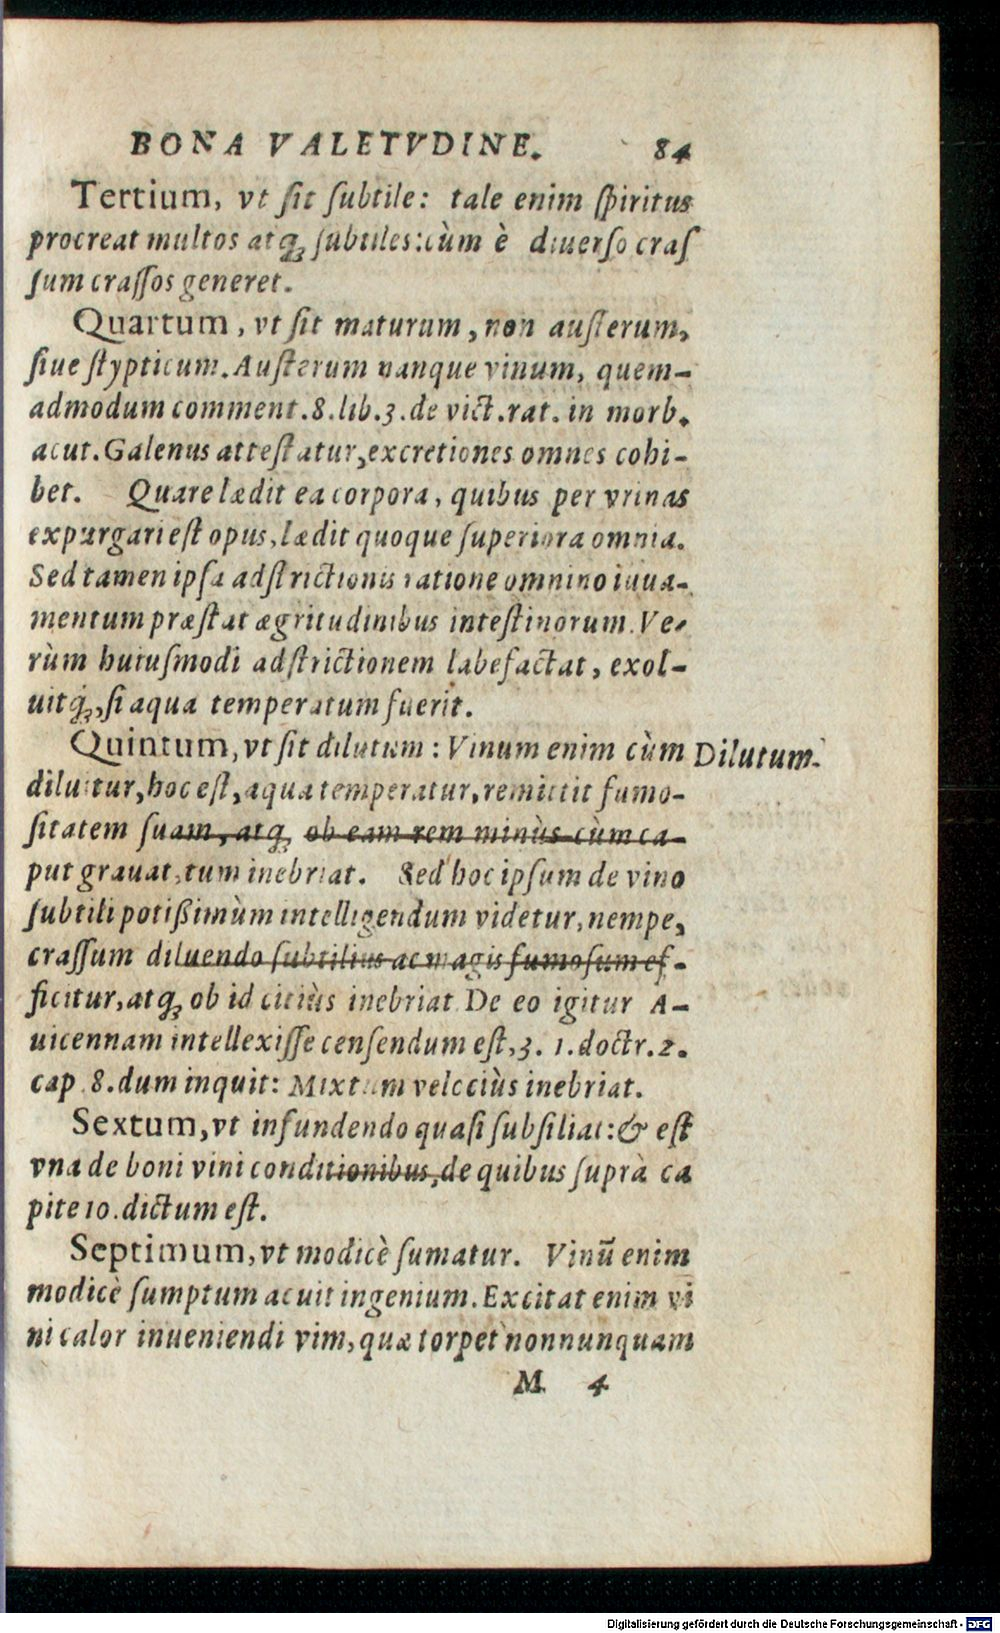 BONA VALETVDINE. 84
Tertium, vt sit subtile: tale enim spiritus
procreat multos atq; subtiles: cùm è diuerso cras
sum crassos generet.
Quartum, vt sit maturum, non austerum,
siue stypticum. Austerum nanque vinum, quem-
admodum comment. 8. lib. 3. de vict. rat. in morb.
acut. Galenus attestatur, excretiones omnes cohi-
bet. Quare lædit ea corpora, quibus per vrinas
expurgari est opus, lædit quoque superiora omnia.
Sed tamen ipsa adstrictionis ratione omnino iuua-
mentum præstat ægritudinibus intestinorum. Ve-
rùm huiusmodi adstrictionem labefactat, exol-
uitq́;, si aqua temperatum fuerit.
Quintum, vt sit dilutum: Vinum enim cùm
Dilutum.
diluitur, hoc est, aqua temperatur, remittit fumo-
sitatem suam, atq; ob eam rem minùs cùm ca-
put grauat, tum inebriat. Sed hoc ipsum de vino
subtili potißimùm intelligendum videtur, nempe,
crassum diluendo subtilius ac magis fumosum ef-
ficitur, atq; ob id citiùs inebriat. De eo igitur A-
uicennam intellexisse censendum est, 3. 1. doctr. 2.
cap. 8. dum inquit: Mixtum velociùs inebriat.
Sextum, vt infundendo quasi subsiliat: & est
vna de boni vini conditionibus, de quibus suprà ca
pite 10. dictum est.
Septimum, vt modicè sumatur. Vinū enim
modicè sumptum acuit ingenium. Excitat enim vi
ni calor inueniendi vim, quæ torpet nonnunquam
M 4
Digitalisierung gefördert durch die Deutsche Forschungsgemeinschaft - DFG